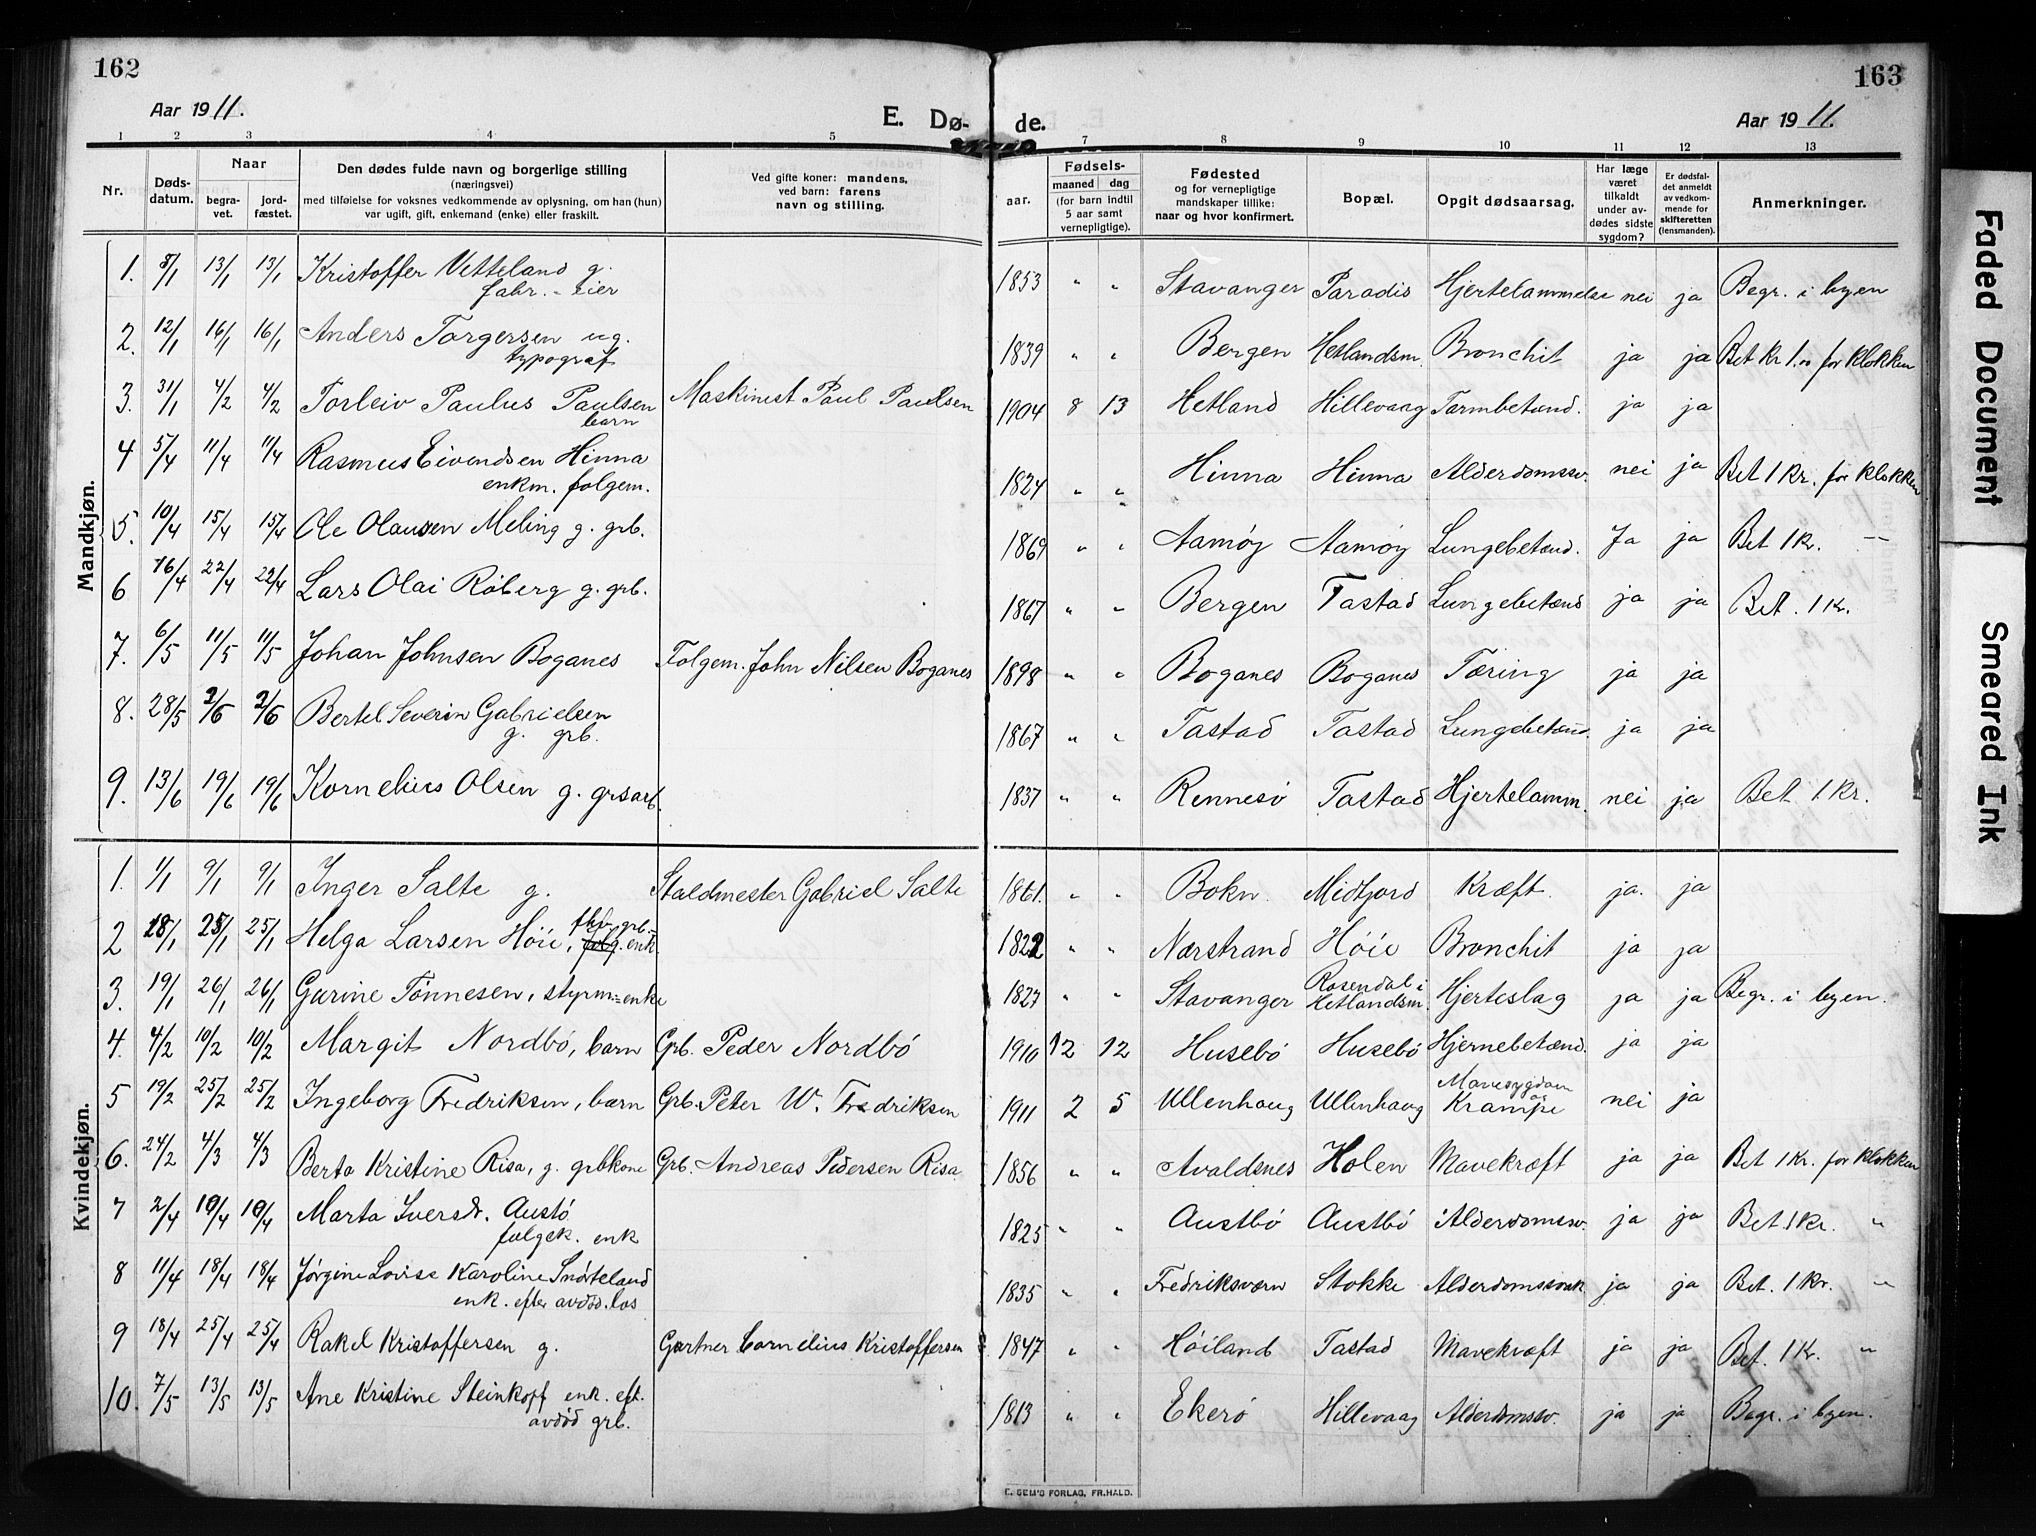 162
163
Aar 1911.
E. Dø-
de.
Aar 1911.
1 2 3 4 5 7 8 9 10 11 12 13
Nr.
Døds-
datum.
Naar
begra-
vet.
jord-
fæstet.
Den dødes fulde navn og borgerlige stilling
(næringsvei)
med tilføielse for voksnes vedkommende av oplysning, om han (hun)
var ugift, gift, enkemand (enke) eller fraskilt.
Ved gifte koner: mandens,
ved barn: farens
navn og stilling.
aar.
Fødsels-
maaned dag
(for barn indtil
5 aar samt
vernepligtige).
Fødested
og for vernepligtige
mandskaper tillike:
naar og hvor konfirmert.
Bopæl.
Opgit dødsaarsag.
Har læge
været
tilkaldt
under av-
dødes sidste
sygdom?
Er dødsfal-
det anmeldt
av vedkom-
mende for
skifteretten
(lensmanden).
Anmerkninger.
Mandkjøn.
1. 8/1 13/1 13/1 Kristoffer Vetteland g. 1853 " " Stavanger Paradis Hjertelammelse nei ja Begr. i byen
fabr.-eier
2. 12/1 16/1 16/1 Anders Torgersen ug. 1839 " " Bergen Hetlandsm. Bronchit ja ja Bet Kr 1.00 for klokken
typograf
3. 31/1 4/2 4/2 Torleiv Paulus Paulsen Maskinist Paul Paulsen 1904 8 13 Hetland Hillevaag Tarmbetænd. ja ja
barn
4 5/4 11/4 11/4 Rasmus Eivendsen Hinna 1824 " " Hinna Hinna Alderdomssv. nei ja Bet 1 Kr. for klokken
enkm. folgem.
5. 10/4 15/4 15/4 Ole Olausen Meling g. grb. 1869 " " Aamøy Aamøy Lungebetænd. Ja ja Bet 1 Kr. --
6 16/4 22/4 22/4 Lars Olai Roberg g. grb. 1867 " " Bergen Tastad Lungebetænd ja ja Bet. 1 Kr.
7. 6/5 11/5 11/5 Johan Johnsen Boganes Folgem. John Nilsen Boganes 1898 " " Boganes Boganes Tæring ja ja
8. 28/5 2/6 2/6 Bertel Severin Gabrielsen 1867 " " Tastad Tastad Lungebetænd. ja ja
g. grb.
9. 13/6 19/6 19/6 Kornelius Olsen g. grsarb. 1837 " " Rennesø Tastad Hjertelamm. nei ja Bet 1 Kr.
Kvindekjøn.
1. 1/1 9/1 9/1 Inger Salte g. Staldmester Gabriel Salte 1861. " " Bokn Midtjord Kræft. ja. ja
2 18/1 25/1 25/1 Helga Larsen Høie, fhv. grb.- folg. enk. 1822 " " Nærstrand Høie Bronchit ja ja
3. 19/1 26/1 26/1 Gurine Tönnesen, styrm=enke 1827 " " Stavanger Rosendal i Hetlandsm. Hjerteslag ja ja Begr. i byen.
4. 4/2 10/2 10/2 Margit Nordbø, barn Grb. Peder Nordbø 1910 12 12 Husebø Husebø Hjernebetænd. ja ja
5 19/2 25/2 25/2 Ingeborg Fredriksen, barn Grb. Peter W. Fredriksen 1911 2 5 Ullenhaug Ullenhaug Mavesygdom og Krampe nei ja
6. 24/2 4/3 4/3 Berta Kristine Risa, g. grbkone Grb. Andreas Pedersen Risa 1856 " " Avaldsnes Holen Mavekræft ja ja Bet 1 Kr. for klokken
7 2/4 10/4 10/4 Marta Iversdr. Austø 1825 " " Austbø Austbø Alderdomssv. ja ja Bet 1 Kr. "
folgek. enk
8 11/4 18/4 18/4 Jørgine Lovise Karoline Snørteland 1835 " " Fredriksværn Stokke Alderdomssvak. ja ja Bet. 1 Kr. "
enk. efter avdød. los
9 18/4 25/4 25/4 Rakel Kristoffersen g. Gartner Cornelius Kristoffersen 1847 " " Høiland Tastad Mavekræft ja ja Bet. 1 Kr. "
10. 7/5 13/5 13/5 Ane Kristine Steinkopf enk. eft. 1813 " " Ekerø Hillevaag Alderdomssv. ja ja Begr. i byen.
avdød grb.
E. SEM'S FORLAG, FR.HALD.
Faded Document
Smeared Ink